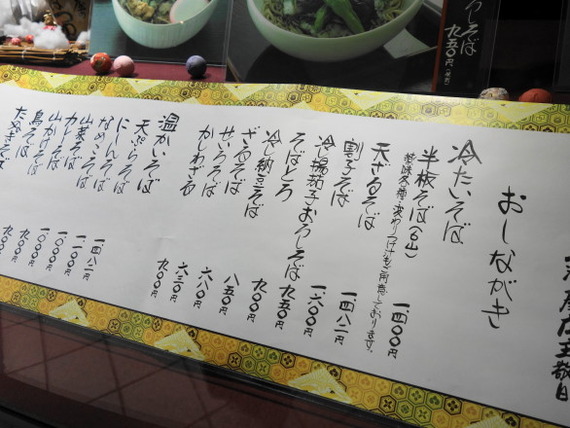 ろしそば
九五〇円
店主敬白
おしながき
冷たいそば
半板そば(6山) 一.四〇〇円
薬味各種、変わりつけもご用意しております。
天ざるそば 一.四八二円
割子そば 一.〇〇〇円
冷揚茄子おろしそば 九五〇円
そばとろ 九〇〇円
冷納豆そば 八五〇円
ざるそば 六八〇円
せいろそば 六三〇円
かしわざる 九〇〇円
温かいそば
天ぷらそば 一.四八二円
にしんそば 一.一〇〇円
なめこそば 一.〇〇〇円
山菜そば 一.〇〇〇円
カレーそば 九〇〇円
山かけそば 九〇〇円
鳥そば
たぬきそば